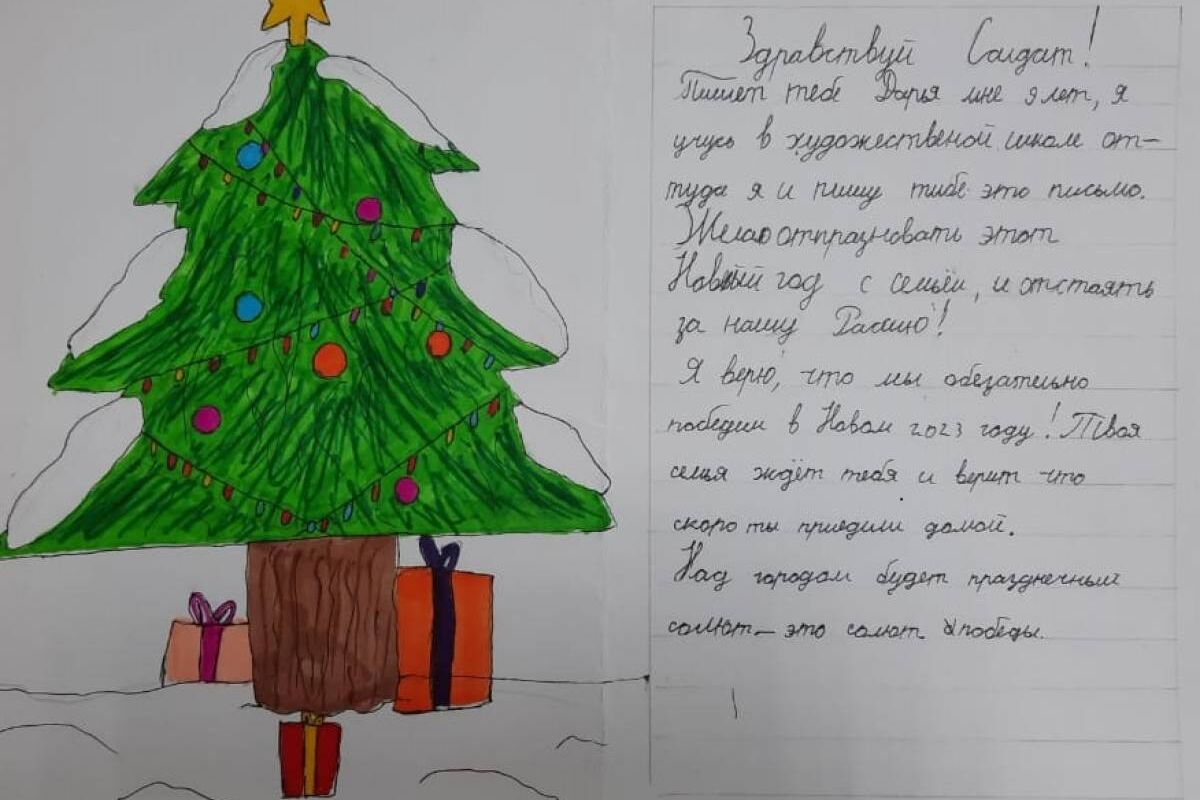 Здравствуй Солдат!
Пишет тебе Дарья мне 9 лет, я
учусь в художественой школе от-
туда я и пишу тибе это письмо.
Желаю отпразновать этот
Новый год с семьёй, и отстаять
за нашу Рассию!
Я верю, что мы обезательно
победим в Новом 2023 году! Твоя
семья ждёт тебя и верит что
скоро ты приедиш домой.
Над городом будет праздничный
салют – это салют победы.